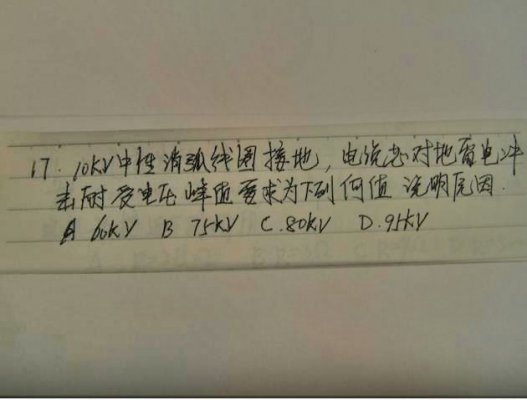 17. 10kV中性消弧线圈接地，电流芯对地雷电冲
击耐受电压峰值要求为下列何值 说明原因.
A 60kV B 75kV C.80kV D.95kV